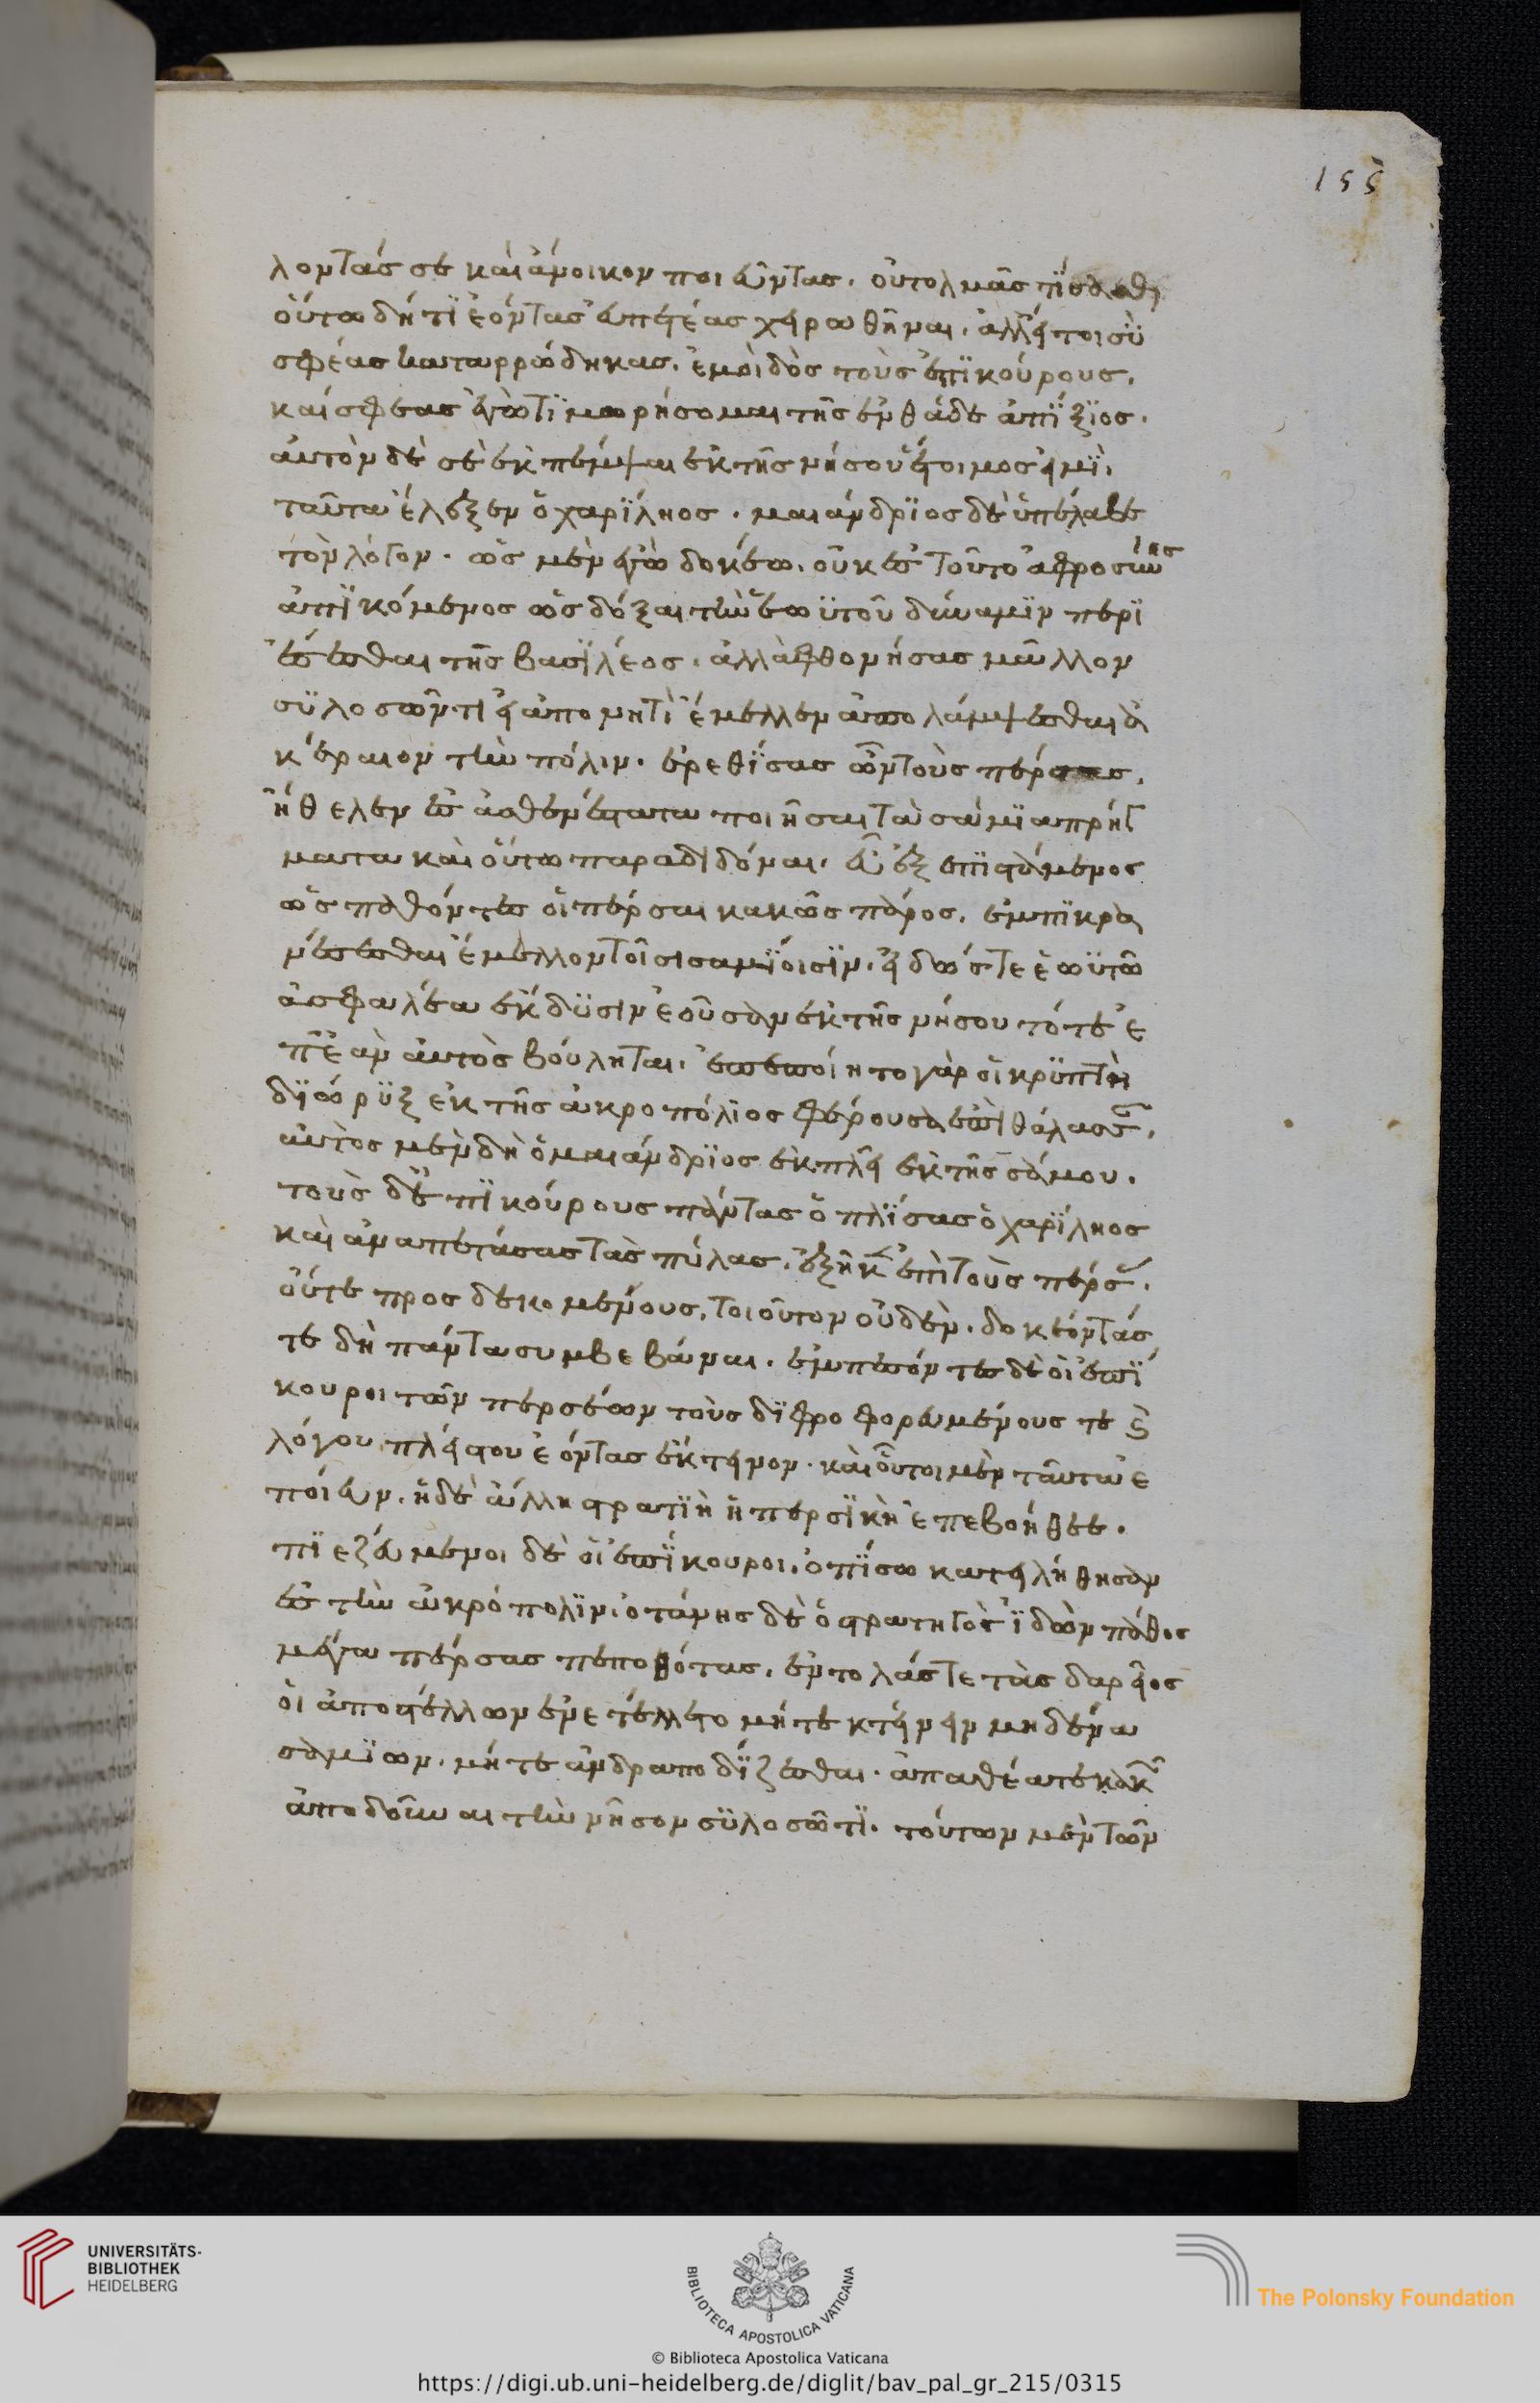 155
λοντάς σε καὶ ἄνοικον ποιεῦντας. οὐ τολμᾶς τίσασθαι
οὕτω δή τι ἐόντας εὐπετέας χειρωθῆναι. ἀλλ' εἴ τοι σὺ
σφέας καταρρώδηκας. ἐμοὶ δὸς τοὺς ἐπικούρους.
καί σφεας ἐγὼ τιμωρήσομαι τῆς ἐνθάδε ἀπίξιος.
αὐτὸν δὲ σὲ ἐκπέμψαι ἐκ τῆς νήσου ἕτοιμος εἰμὶ.
ταῦτα ἔλεξεν ὁ χαρίληος. μαιάνδριος δὲ ὑπέλαβε
τὸν λόγον. ὡς μὲν ἐγὼ δοκέω. οὐκ ἐς τοῦτο ἀφροσύνης
ἀπικόμενος ὡς δόξαι τὴν ἑωυτοῦ δύναμιν περι
έσεσθαι τῆς βασιλέος. ἀλλὰ φθονήσας μᾶλλον
συλοσῶντι εἰ ἀπονητὶ ἔμελλεν ἀπολάμψεσθαι ἀ
κέραιον τὴν πόλιν. ἐρεθίσας ὦν τοὺς πέρσας.
ἤθελεν ὡς ἀσθενέστατα ποιῆσαι τὰ σάμια πρήγ
ματα καὶ οὕτω παραδιδόναι. εὖ ἐξεπιστάμενος
ὡς παθόντες οἱ πέρσαι κακῶς πάρος. ἐμπικρα
νέεσθαι ἔμελλον τοῖσι σαμίοισιν. εἰδώς τε ἑωυτῶ
ἀσφαλέα ἔκδυσιν ἐοῦσαν ἐκ τῆς νήσου τότε ἐ
πεὰν αὐτὸς βούληται. ἐπεποίητο γάρ οἱ κρυπτὴ
διῶρυξ ἐκ τῆς ἀκροπόλιος φέρουσα ἐπὶ θάλασσαν.
αὐτὸς μὲν δὴ ὁ μαιάνδριος ἐκπλεῖ ἐκ τῆς σάμου.
τοὺς δ' ἐπικούρους πάντας ὁπλίσας ὁ χαρίληος
καὶ ἀναπετάσας τὰς πύλας. ἐξῆκε ἐπὶ τοὺς πέρσας.
οὔτε προσδεκομένους, τοιοῦτον οὐδὲν. δοκέοντάς
τε δὴ πάντα συμβεβάναι. ἐμπεσόντες δὲ οἱ ἐπί
κουροι τῶν περσέων τοὺς διφροφορευμένους τε καὶ
λόγου πλείστου ἐόντας ἔκτεινον. καὶ οὗτοι μὲν ταῦτα ἐ
ποίευν. ἡ δὲ ἄλλη στρατιὴ ἡ περσικὴ ἐπεβοήθεε.
πιεζεύμενοι δὲ οἱ ἐπίκουροι. ὀπίσω κατειλήθησαν
ἐς τὴν ἀκρόπολιν. ὀτάνης δὲ ὁ στρατηγὸς ἰδὼν πάθος
μέγα πέρσας πεπονθότας. ἐντολάς τε τὰς δαρεῖος
οἱ ἀποστέλλων ἐνετέλλετο μήτε κτείνειν μηδένα
σαμίων. μήτε ἀνδραποδίζεσθαι. ἀπαθέα τε κακῶν
ἀποδοῦναι τὴν νῆσον συλοσῶντι. τούτων μὲν τῶν
UNIVERSITÄTS-
BIBLIOTHEK
HEIDELBERG
BIBLIOTECA APOSTOLICA VATICANA
The Polonsky Foundation
© Biblioteca Apostolica Vaticana
https://digi.ub.uni-heidelberg.de/diglit/bav_pal_gr_215/0315